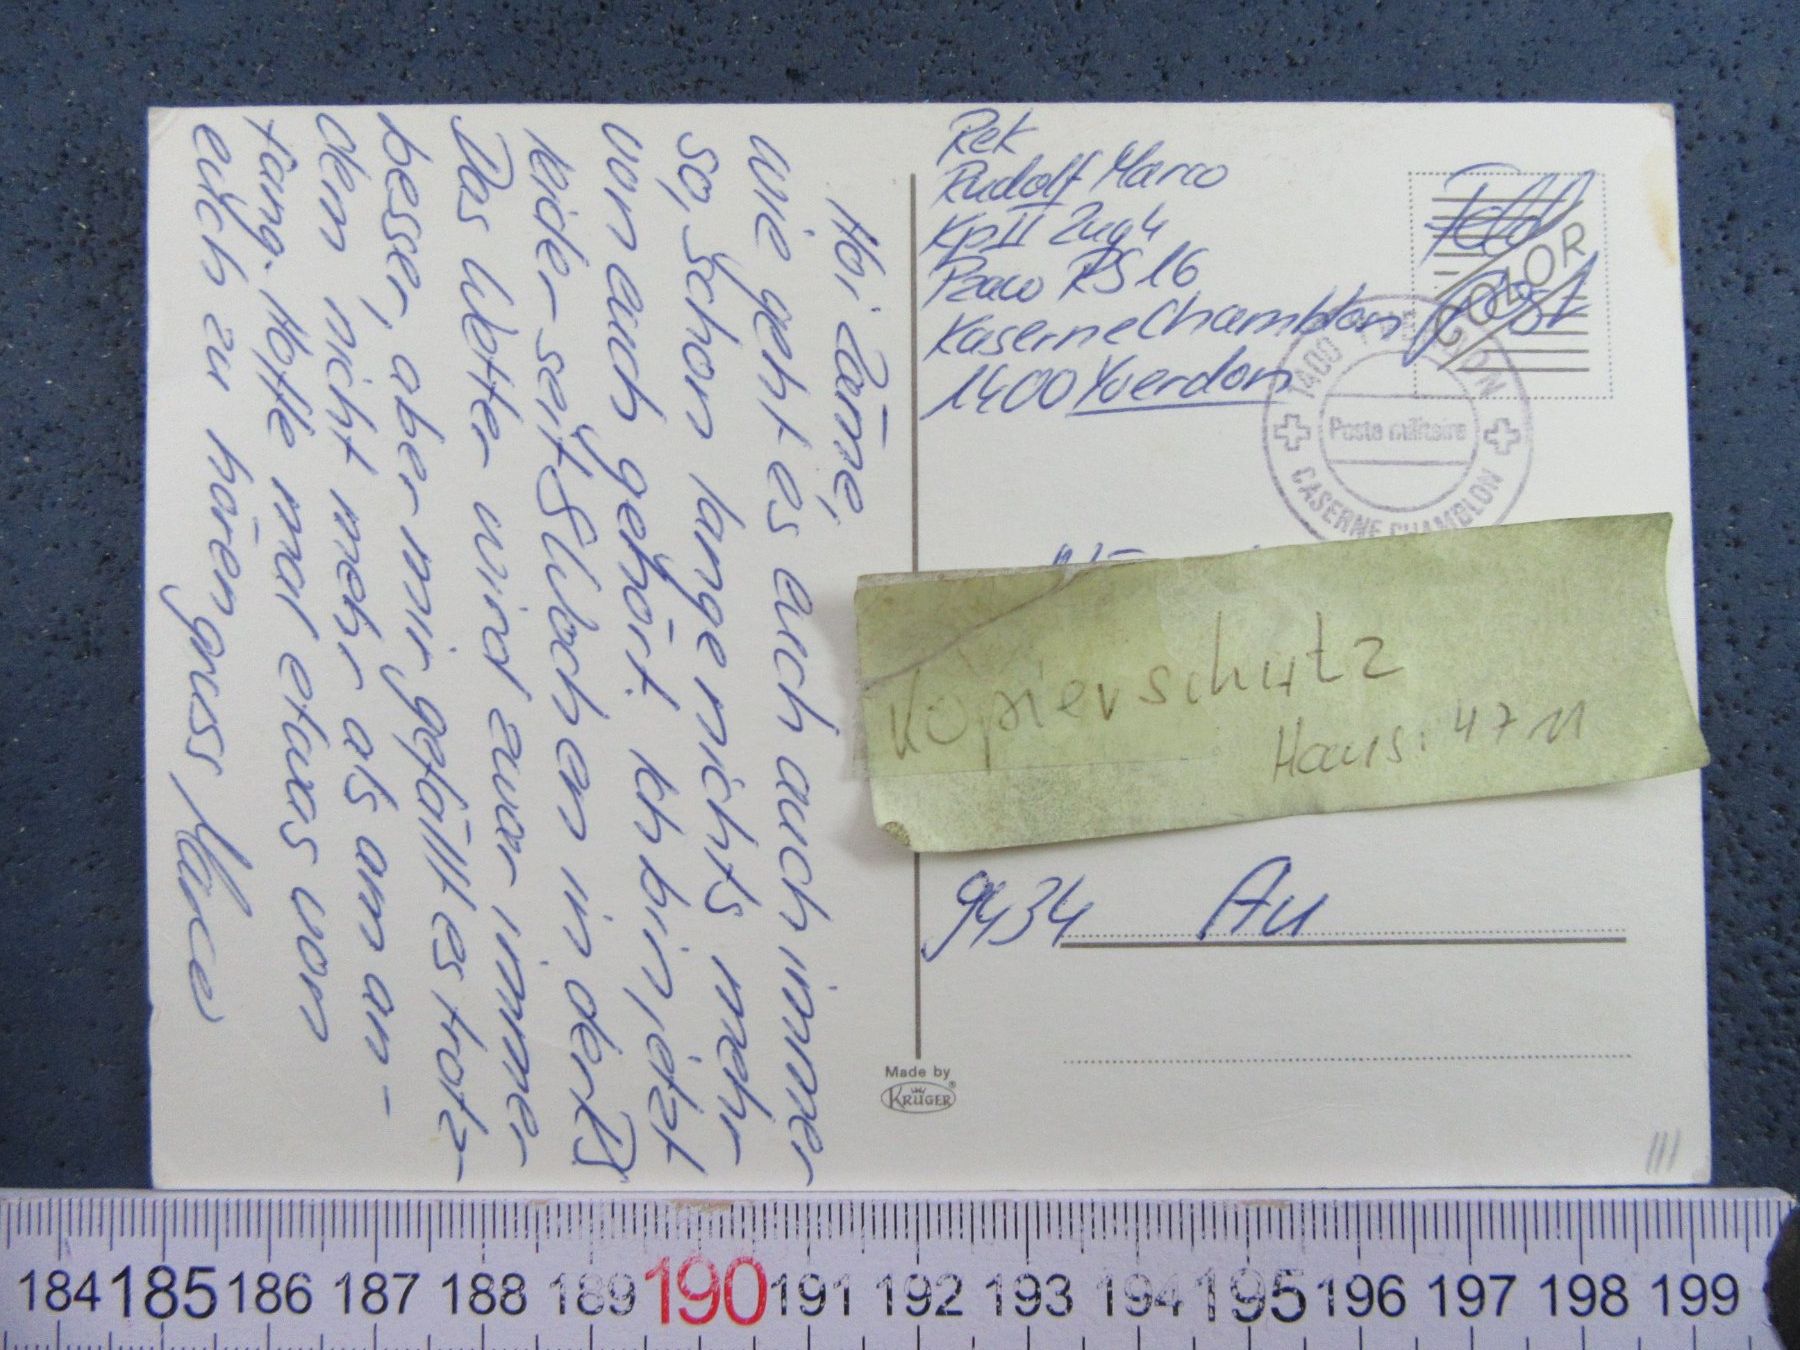 Hoi Zäme,
wie geht es euch auch immer
so, schon lange nichts mehr
von euch gehört. Ich bin jetzt
leider seit 8 Wochen in der RS
Das Wetter wird zwar immer
besser, aber mir gefällt es trotz-
dem nicht mehr als am an-
fang. Hoffe mal etwas von
euch zu hören gruss Marco
Rek
Rudolf Marco
Kp II Zug 4
RS 16
Kaserne Chamblon
1400 Yverdon
Feld
Post
COLOR
1400 YVERDON
Poste militaire
CASERNE CHAMBLON
Kopierschutz
Haus: 4711
9434 Au
Made by
KRÜGER®
184 185 186 187 188 189 190 191 192 193 194 195 196 197 198 199